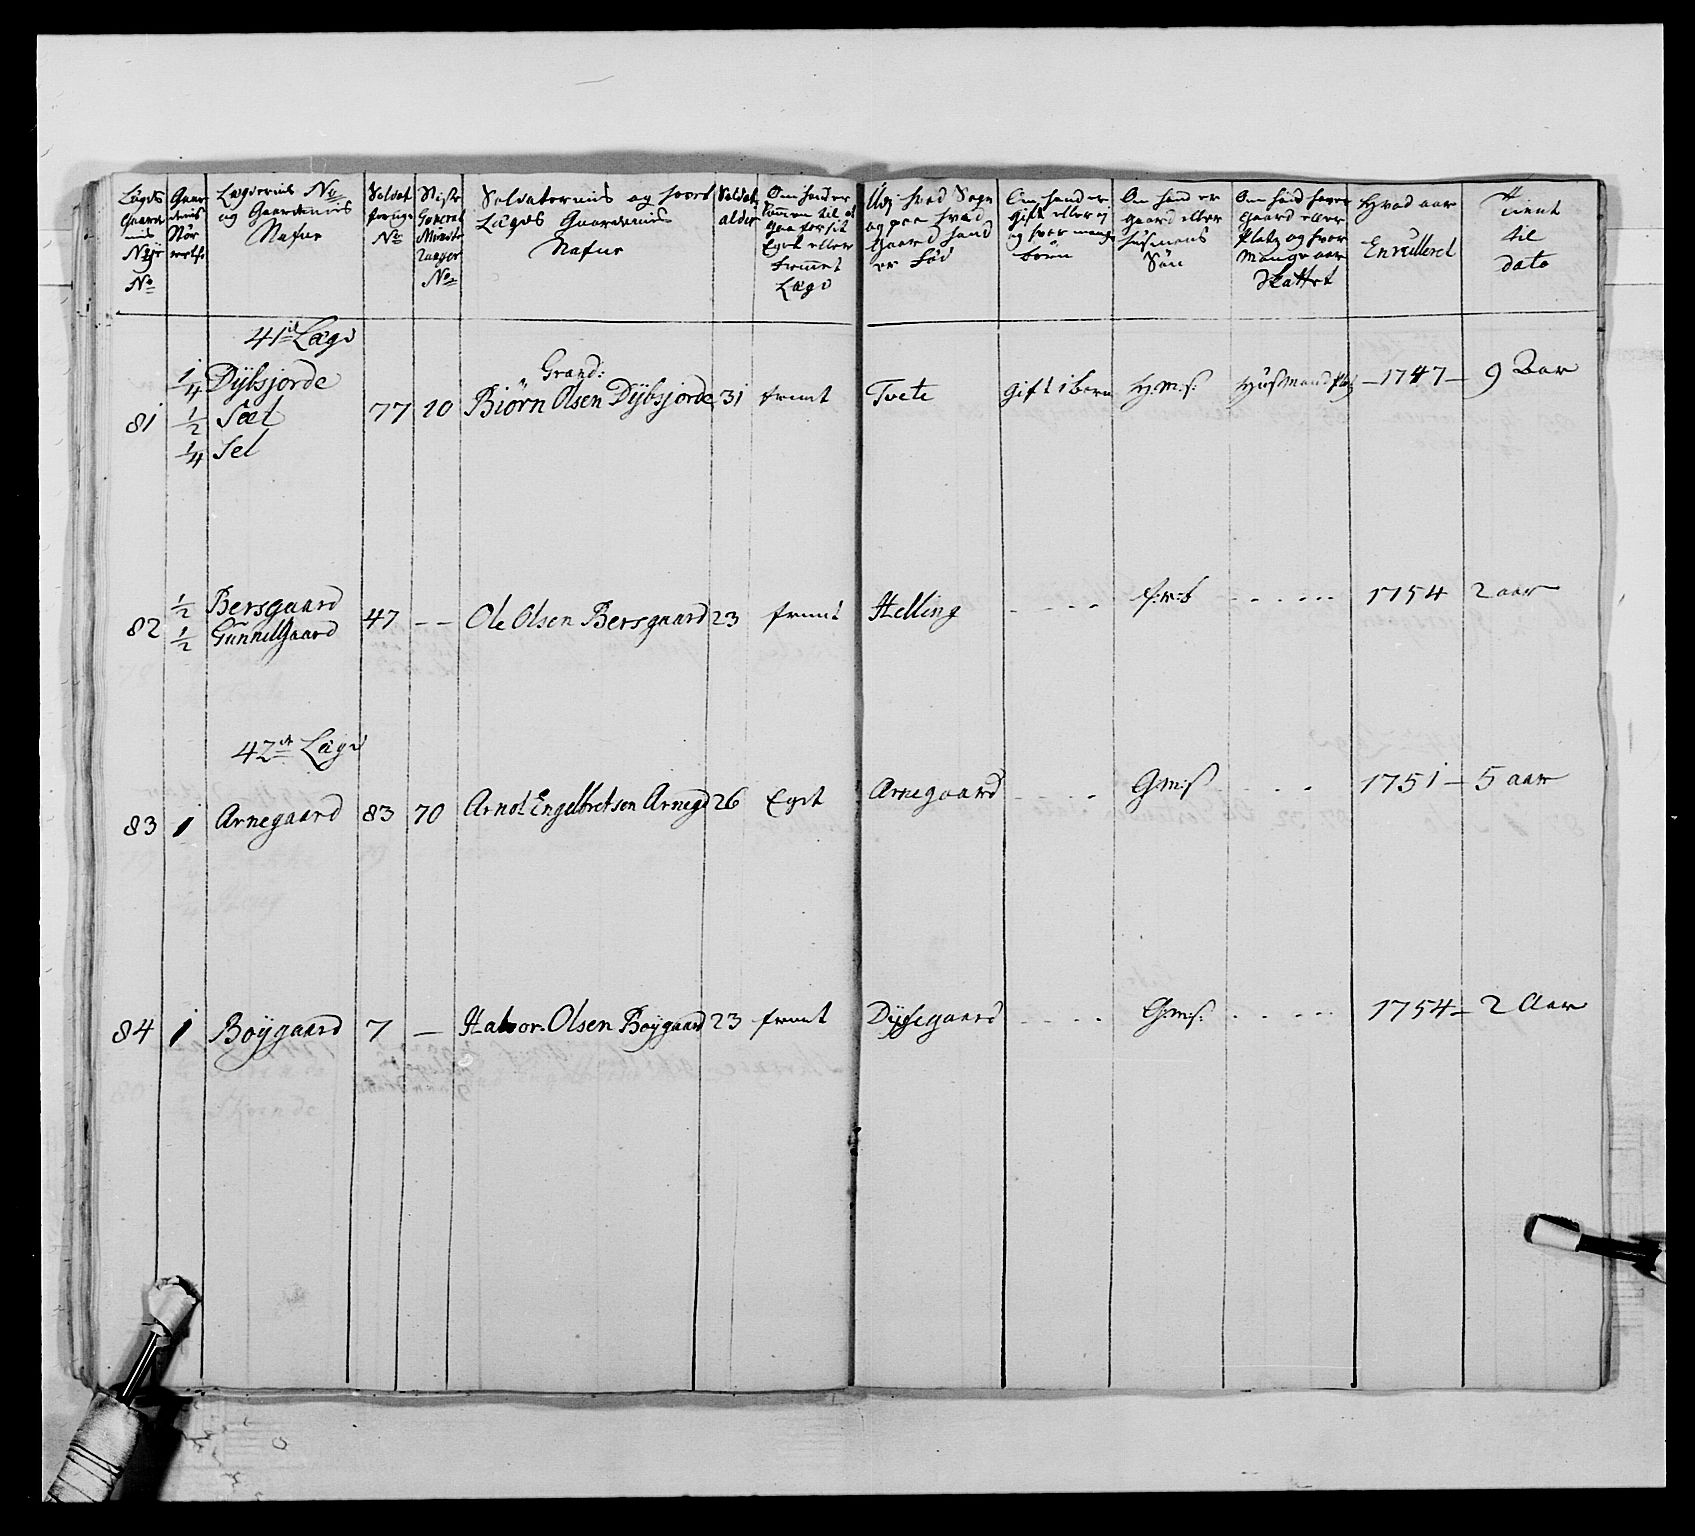 Lægds Gaardenis Nÿe No
Gaardenis Stør
Lægdernis No og Gaardernis Nafne
Soldat forrige No
Sidste General Mønster No
Soldaternis og hvert Lægds Gaardernis Nafne
Soldat alder
Om hand er kommen til at gaa for sit Eget eller fremmet Lægd
Udj hvad Sogn og paa hvad Gaard hand er Fød
Om hand er gift eller ej og hvor mange børn
Om hand er gaard eller husmans Søn
Om hand haver Gaard eller Platz og hvor mange aar Skattet
Hvad aar Enrulleret
Tient til dato
41de Lægd
81
1/4 Dÿbsjorde
1/2 Sæt
1/4 Sel
77 10 Grand: Biörn Olsen Dÿbsjorde 31 fremt Tvete Gift 1 barn H:m:s: Husmand Plaz — 1747 — 9 Aar
82
1/2 Bersgaard
1/2 Gunnelsgaard
47 — — Ole Olsen Bersgaard 23 fremt Helling - - - - - - - - - 1754 2 aar
42de Lægd
83 1 Arnegaard 83 70 Arnol Engelbretsen Arneg 26 Eget Arnegaard - - - G:m:s - - - 1751 — 5 aar
84 1 Boÿgaard 7 — Halvor Olsen Boÿgaard 23 fremt - - - - G:m:s: - - - - 1754 — 2 Aar